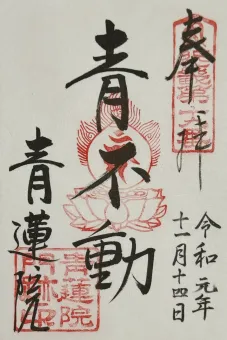 奉拝
青不動
青蓮院
令和元年
十一月十四日
青蓮院
門跡印